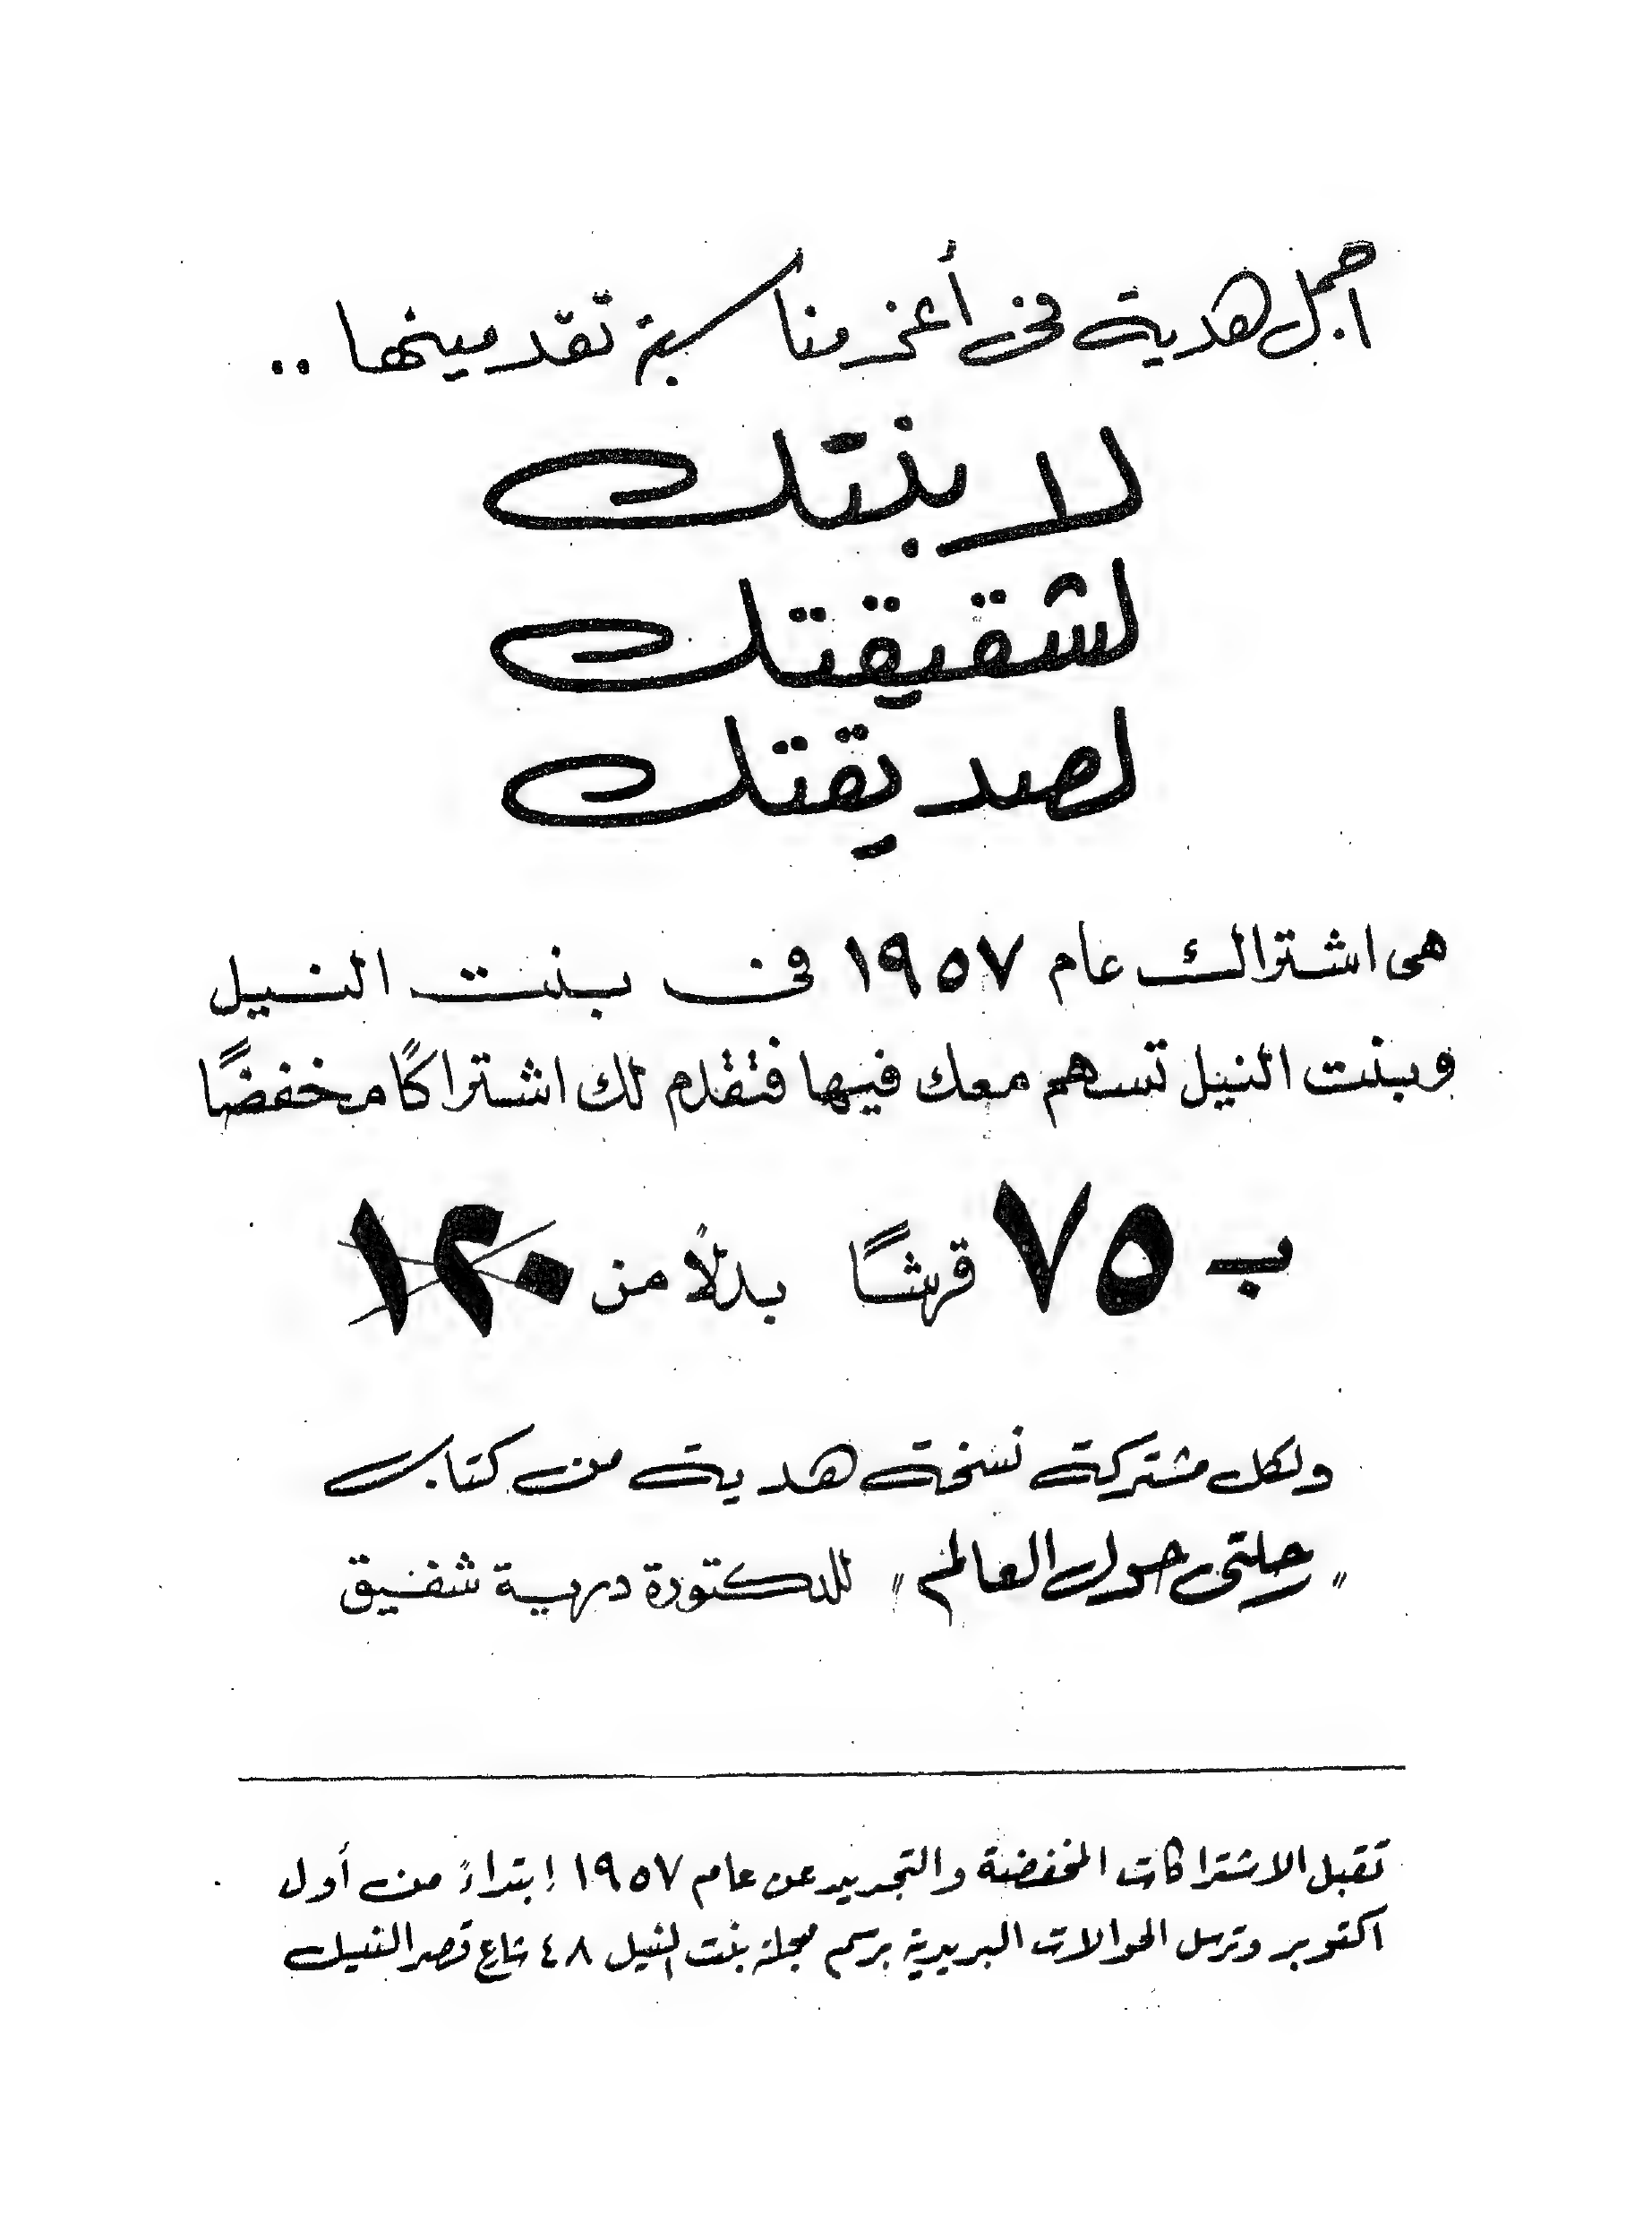 اجمل هدية فى أعز مناسبة تقدمينها ..
لابنتك
لشقيقتك
لصديقتك
هى اشتراك عام ١٩٥٧ فى بنت النيل
وبنت النيل تسهم معك فيها فتقدم لك اشتراكًا مخفضًا
بـ ٧٥ قرشًا بدلًا من ١٢٠
ولكل مشتركة نسخة هدية من كتاب
"رحلتى حول العالم" للدكتورة درية شفيق
تقبل الاشتراكات المخفضة والتجديد عن عام ١٩٥٧ إبتداءً من أول
اكتوبر وترسل الحوالات البريدية برسم مجلة بنت النيل ٤٨ شارع قصر النيل